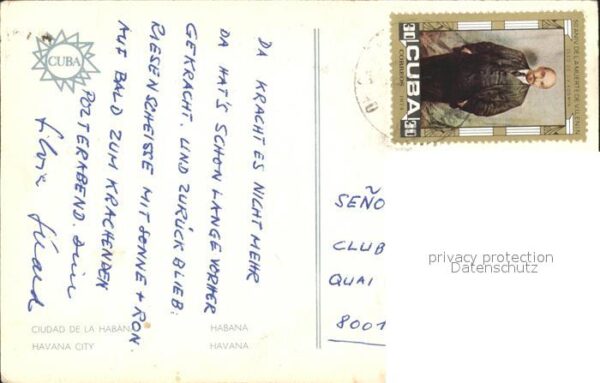 CUBA
DA KRACHT ES NICHT MEHR
DA HAT'S SCHON LANGE VORHER
GEKRACHT. UND ZURÜCK BLIEB:
RIESENSCHEISSE MIT SONNE + RON.
AUF BALD ZUM KRACHENDEN
POLTERABEND.
Silvia
CIUDAD DE LA HABANA
HAVANA CITY
HABANA
HAVANA
50 ANIV. DE LA MUERTE DE V. I. LENIN
CORREOS 1974
CUBA
30
30
SEÑO
CLUB
QUAI
8001
privacy protection
Datenschutz